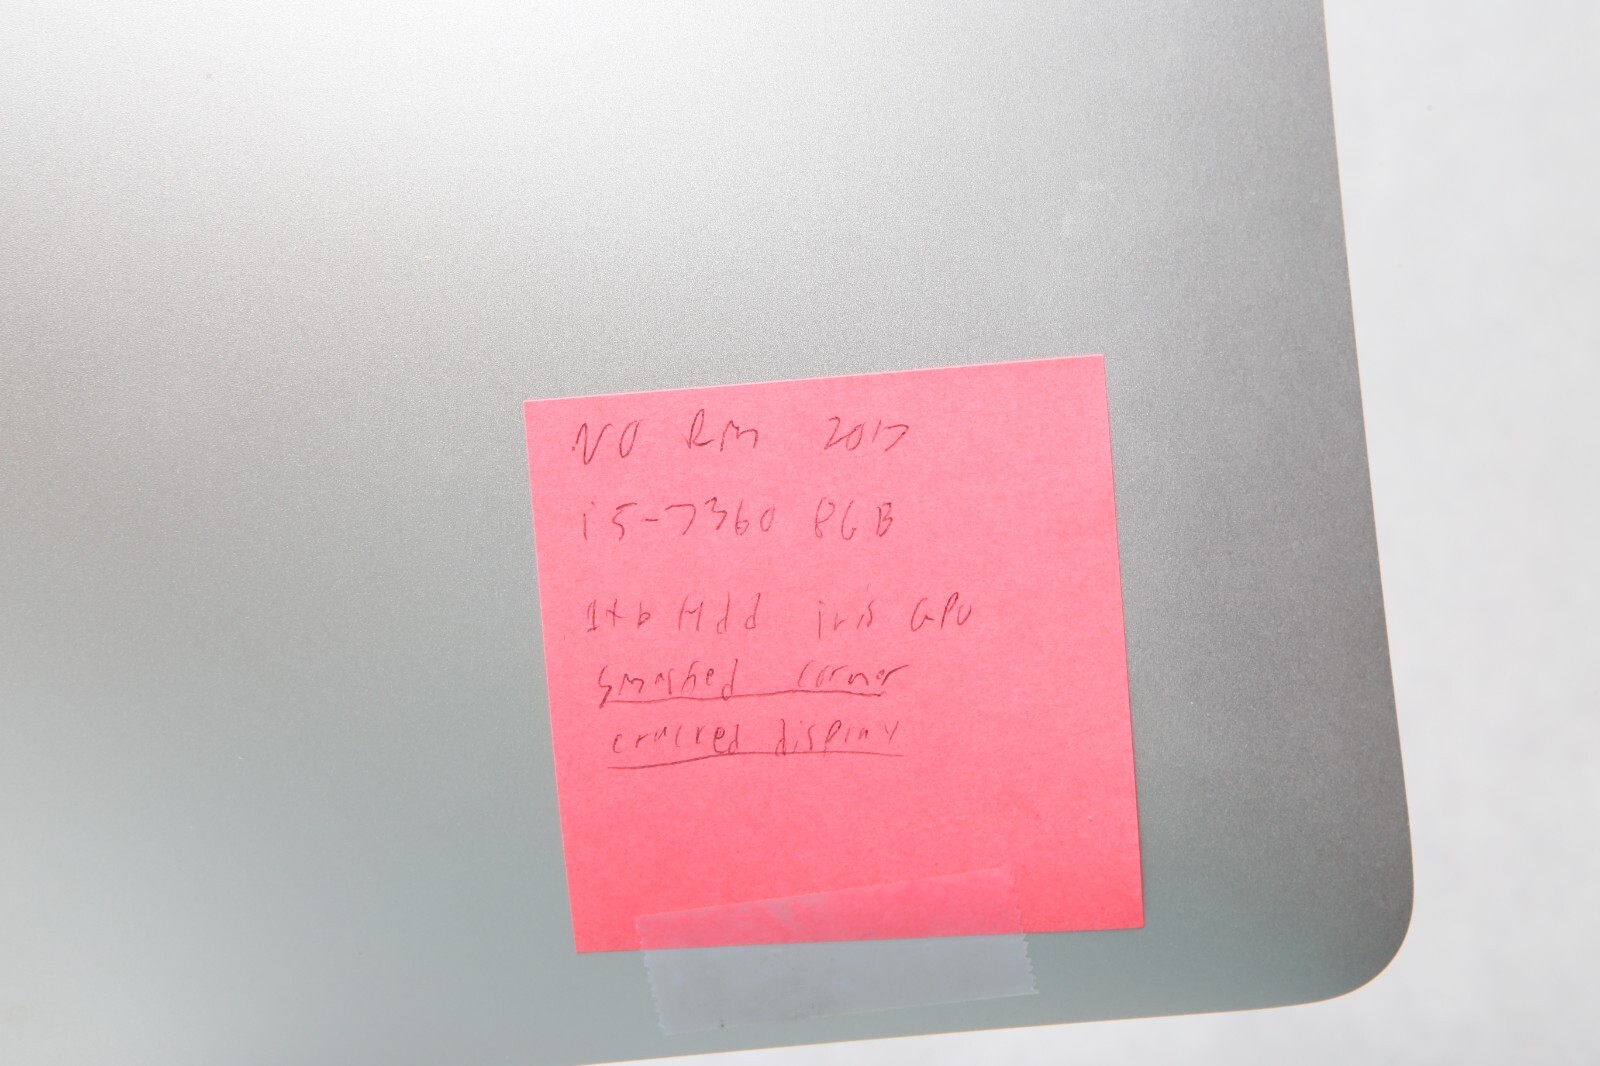 NO RM 2017
i5-7360 8GB
1tb Hdd iris GPU
smashed corner
cracked display